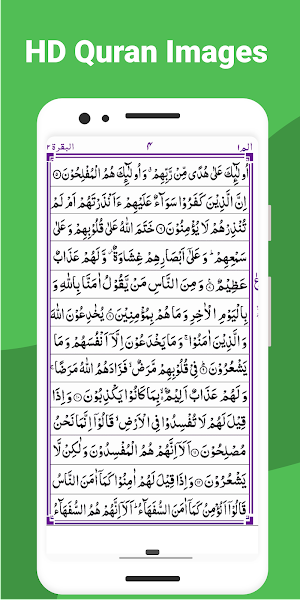 HD Quran Images
البقرة ٢ ۴ الٓمّ ١
أُولٰٓئِكَ عَلٰى هُدًى مِّنْ رَّبِّهِمْ ۗ وَأُولٰٓئِكَ هُمُ الْمُفْلِحُوْنَ ۝٥
اِنَّ الَّذِيْنَ كَفَرُوْا سَوَآءٌ عَلَيْهِمْ ءَاَنْذَرْتَهُمْ اَمْ لَمْ
تُنْذِرْهُمْ لَا يُؤْمِنُوْنَ ۝٦ خَتَمَ اللّٰهُ عَلٰى قُلُوْبِهِمْ وَعَلٰى
سَمْعِهِمْ ۗ وَعَلٰٓى اَبْصَارِهِمْ غِشَاوَةٌ ۫ وَّلَهُمْ عَذَابٌ
عَظِيْمٌ ۝٧ وَمِنَ النَّاسِ مَنْ يَّقُوْلُ اٰمَنَّا بِاللّٰهِ وَ
بِالْيَوْمِ الْاٰخِرِ وَمَا هُمْ بِمُؤْمِنِيْنَ ۝٨ يُخٰدِعُوْنَ اللّٰهَ
وَالَّذِيْنَ اٰمَنُوْا ۚ وَمَا يَخْدَعُوْنَ اِلَّآ اَنْفُسَهُمْ وَمَا
يَشْعُرُوْنَ ۝٩ فِيْ قُلُوْبِهِمْ مَّرَضٌ ۙ فَزَادَهُمُ اللّٰهُ مَرَضًا ۚ
وَلَهُمْ عَذَابٌ اَلِيْمٌ ۢ بِمَا كَانُوْا يَكْذِبُوْنَ ۝١٠ وَاِذَا
قِيْلَ لَهُمْ لَا تُفْسِدُوْا فِي الْاَرْضِ ۙ قَالُوْٓا اِنَّمَا نَحْنُ
مُصْلِحُوْنَ ۝١١ اَلَآ اِنَّهُمْ هُمُ الْمُفْسِدُوْنَ وَلٰكِنْ لَّا
يَشْعُرُوْنَ ۝١٢ وَاِذَا قِيْلَ لَهُمْ اٰمِنُوْا كَمَآ اٰمَنَ النَّاسُ
قَالُوْٓا اَنُؤْمِنُ كَمَآ اٰمَنَ السُّفَهَآءُ ۗ اَلَآ اِنَّهُمْ هُمُ السُّفَهَآءُ